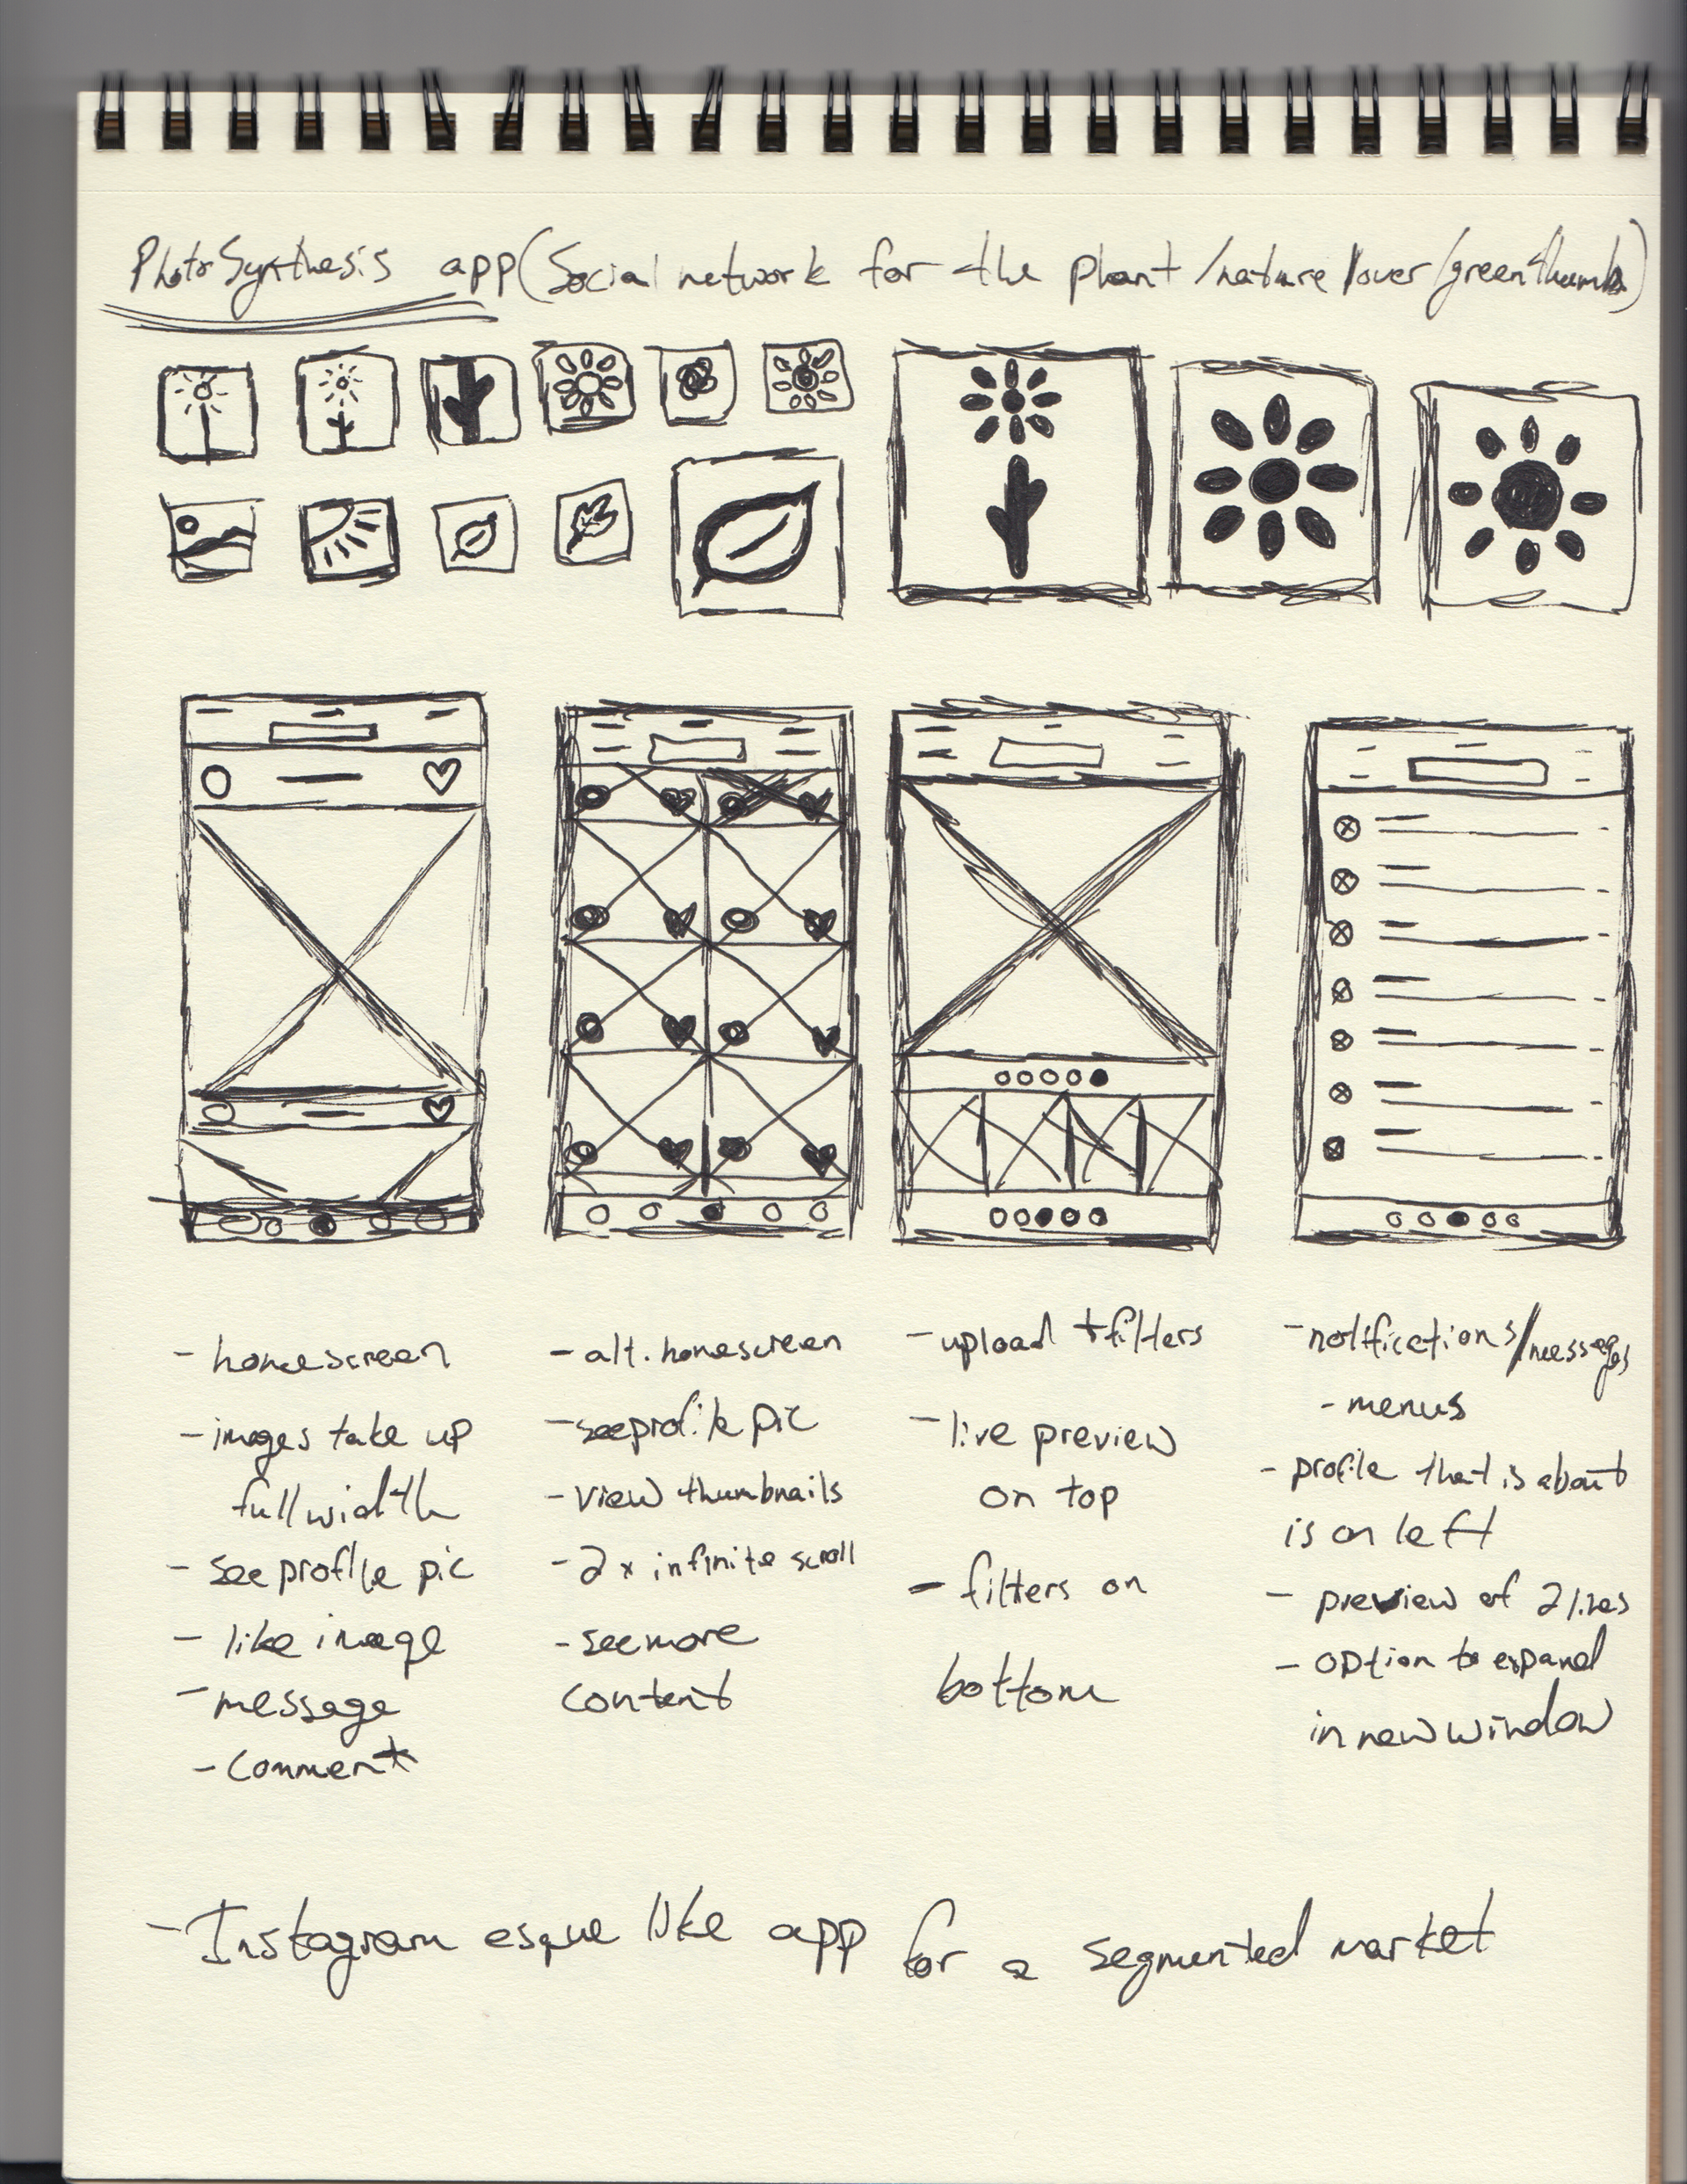 PhotoSynthesis app (Social network for the plant/nature lover/greenthumb)
- homescreen
- images take up
full width
- see profile pic
- like image
- message
- comment
- alt. homescreen
- see profile pic
- view thumbnails
- 2x infinite scroll
- see more
content
- upload + filters
- live preview
on top
- filters on
bottom
- notifications/messages
- menus
- profile that is about
is on left
- preview of 2 lines
- option to expand
in new window
- Instagram esque like app for a segmented market